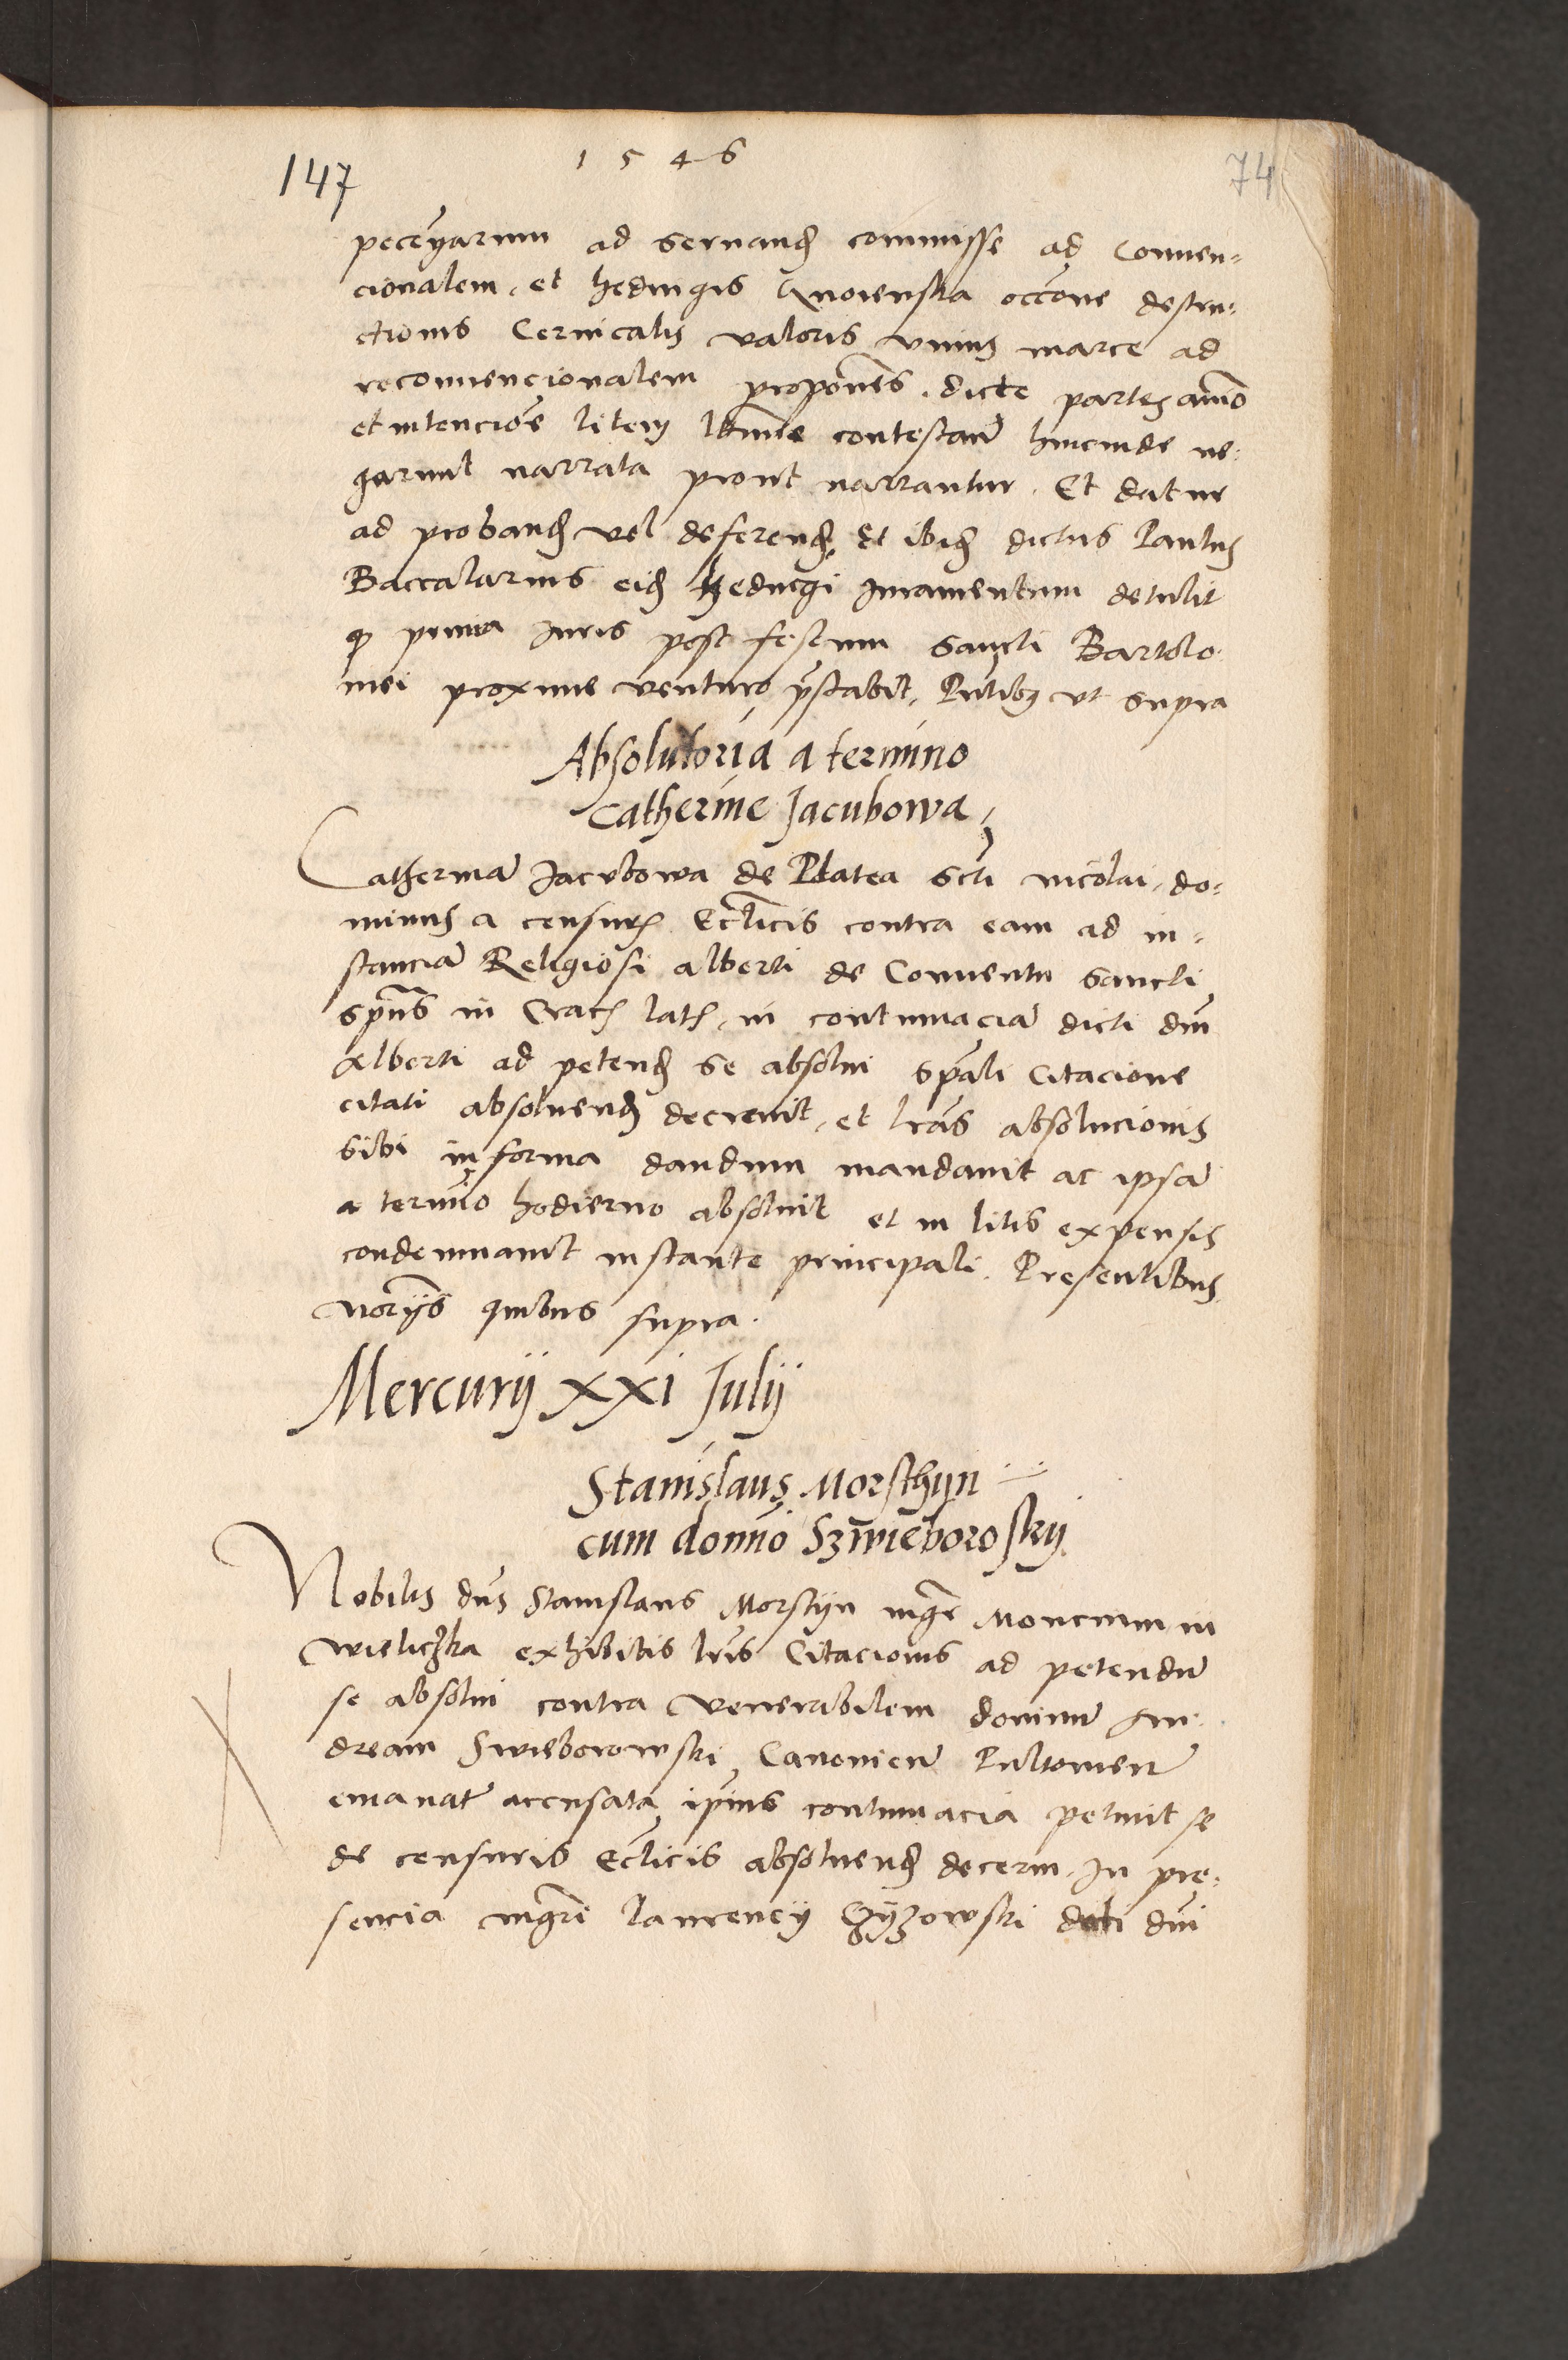 1546
147
74
ad sernand commisse ad Conuen-
cionalem, et hedwigis Gnoienska occone destru-
ctionis Ceruicalis valoris vnius marce ad
reconuencionalem propones. dicte partes animo
et intencioe litem contestan hincinde ne-
garunt narrata prout narrantur. Et datur
ad proband vel deferend. Et ibid dictus Paulus
Baccalarius eid hedwigi Iuramentum detulit
q prima Iuris post festum sancti Bartolo
mei proxime venturo pstabit, Pntibus vt supra
Absolutoria a termino
Catherine Jacubowa
Catherinam Jacubowa de Platea scti nicolai, do-
minus a censur Ecclicis contra eam ad in-
stanciam Religiosi alberti de Conuentu sancti
spus in Crac lat, in contumaciam dicti dni
Alberti ad petend se absolui spali Citacione
citati absoluend decreuit, et lras absolucionis
sibi in forma dandum mandauit ac ipsam
a termio hodierno absoluit et in litis expensis
condemnauit instante principali. Presentibus
norijs quibus supra.
Mercurij xxi Julij
Stanislaus Morsthyn
cum domno Szwieboroskij
Nobilis dns Stanislaus Morstijn
wieliczka exhibitis lris Citacionis ad petendum
se absolui contra Venerabilem dominum An-
dream Swieborowski Canonicum Pultouien
emanat accusata ipius contumacia petiuit se
de censuris Ecclicis absoluend decerni. In pre-
sencia mgri laurencij dni